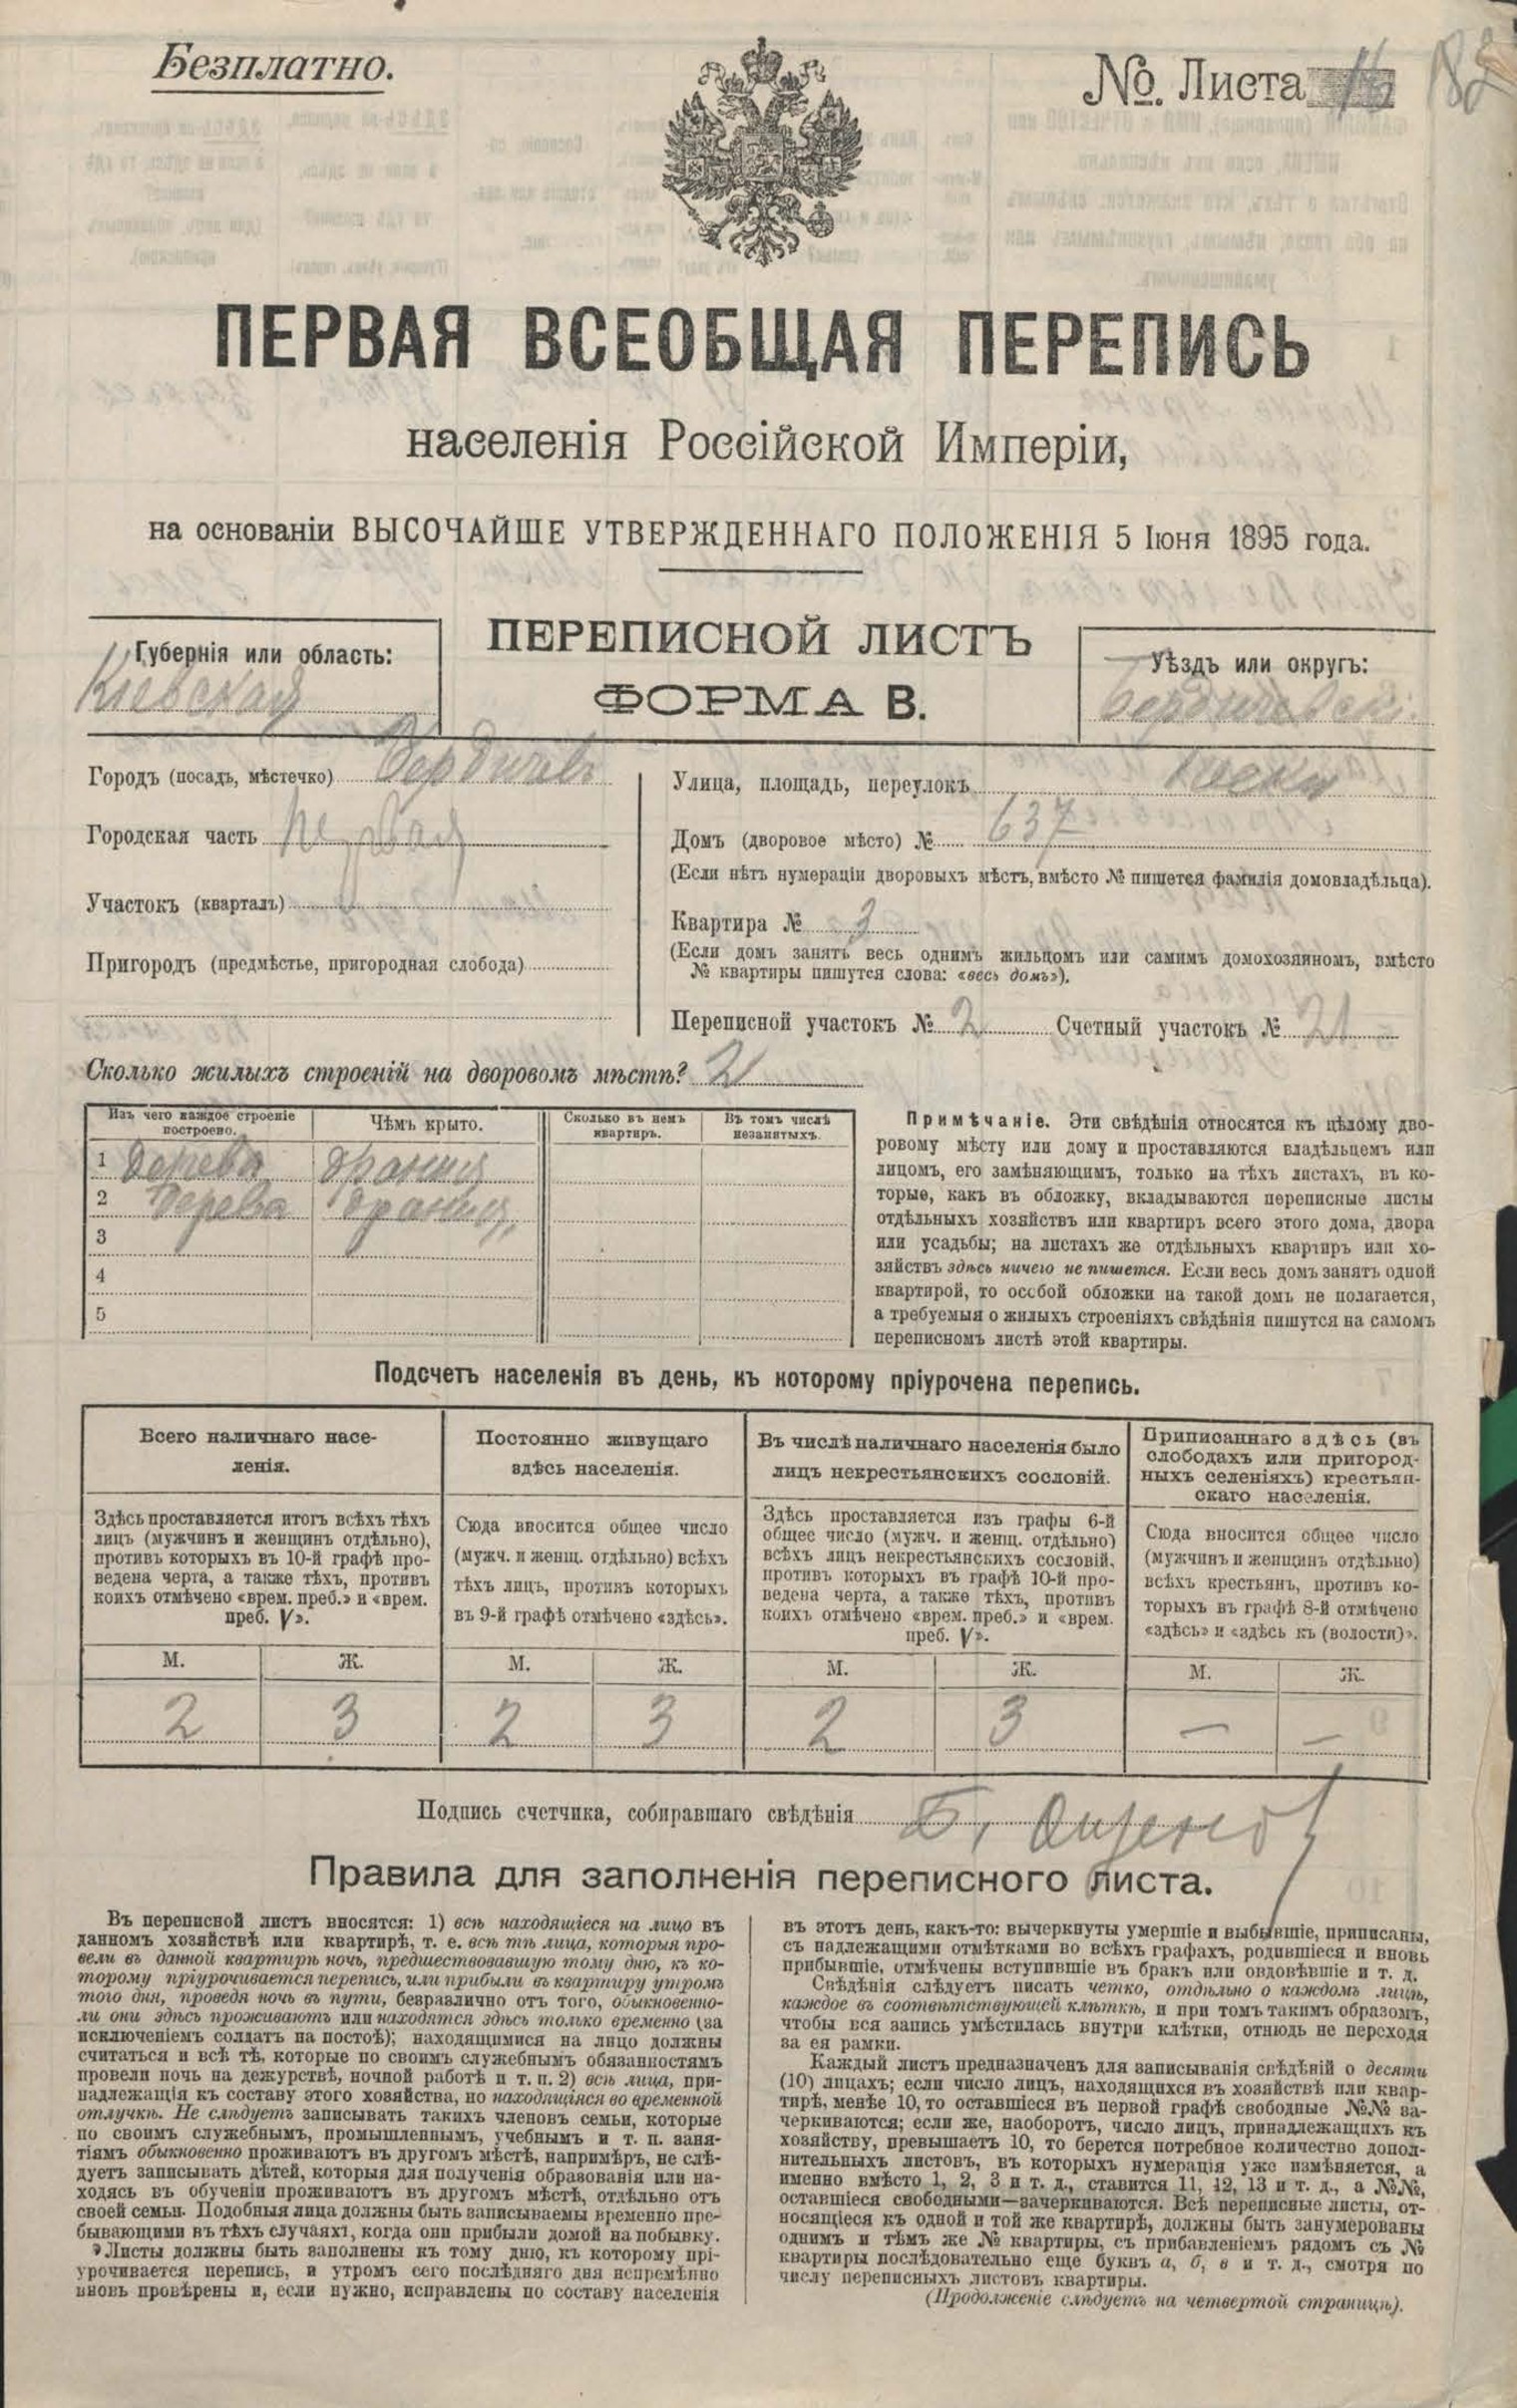 Безплатно.
№. Листа
ПЕРВАЯ ВСЕОБЩАЯ ПЕРЕПИСЬ
населенія Россійской Имперіи,
на основаніи ВЫСОЧАЙШЕ УТВЕРЖДЕННАГО ПОЛОЖЕНІЯ 5 Іюня 1895 года.
Губернія или область:
Кіевская
ПЕРЕПИСНОЙ ЛИСТЪ
ФОРМА В.
Уѣздъ или округъ:
Бердичевскі
Городъ (посадъ, мѣстечко) Бердичевъ
Городская часть
Участокъ (кварталъ)
Пригородъ (предмѣстье, пригородная слобода)
Улица, площадь, переулокъ
Домъ (дворовое мѣсто) № 637
(Если нѣтъ нумераціи дворовыхъ мѣстъ, вмѣсто № пишется фамилія домовладѣльца).
Квартира № 3
(Если домъ занятъ весь однимъ жильцомъ или самимъ домохозяиномъ, вмѣсто
№ квартиры пишутся слова: «весь домъ»).
Переписной участокъ № 2 Счетный участокъ № 21
Сколько жилыхъ строеній на дворовомъ мѣстѣ? 2
Изъ чего каждое строеніе
построено.
Чѣмъ крыто.
Сколько въ немъ
квартиръ.
Въ томъ числѣ
незанятыхъ.
1 дерева драниц
2 дерева драниц
3
4
5
Примѣчаніе. Эти свѣдѣнія относятся къ цѣлому дво-
ровому мѣсту или дому и проставляются владѣльцемъ или
лицомъ, его замѣняющимъ, только на тѣхъ листахъ, въ ко-
торые, какъ въ обложку, вкладываются переписные листы
отдѣльныхъ хозяйствъ или квартиръ всего этого дома, двора
или усадьбы; на листахъ же отдѣльныхъ квартиръ или хо-
зяйствъ здѣсь ничего не пишется. Если весь домъ занятъ одной
квартирой, то особой обложки на такой домъ не полагается,
а требуемыя о жилыхъ строеніяхъ свѣдѣнія пишутся на самомъ
переписномъ листѣ этой квартиры.
Подсчетъ населенія въ день, къ которому пріурочена перепись.
Всего наличнаго насе-
ленія.
Постоянно живущаго
здѣсь населенія.
Въ числѣ наличнаго населенія было
лицъ некрестьянскихъ сословій.
Приписаннаго здѣсь (въ
слободахъ или пригород-
ныхъ селеніяхъ) крестьян-
скаго населенія.
Здѣсь проставляется итогъ всѣхъ тѣхъ
лицъ (мужчинъ и женщинъ отдѣльно),
противъ которыхъ въ 10-й графѣ про-
ведена черта, а также тѣхъ, противъ
коихъ отмѣчено «врем. преб.» и «врем.
преб. V».
Сюда вносится общее число
(мужч. и женщ. отдѣльно) всѣхъ
тѣхъ лицъ, противъ которыхъ
въ 9-й графѣ отмѣчено «здѣсь».
Здѣсь проставляется изъ графы 6-й
общее число (мужч. и женщ. отдѣльно)
всѣхъ лицъ некрестьянскихъ сословій,
противъ которыхъ въ графѣ 10-й про-
ведена черта, а также тѣхъ, противъ
коихъ отмѣчено «врем. преб.» и «врем.
преб. V».
Сюда вносится общее число
(мужчинъ и женщинъ отдѣльно)
всѣхъ крестьянъ, противъ ко-
торыхъ въ графѣ 8-й отмѣчено
«здѣсь» и «здѣсь къ (волости)».
М. Ж. М. Ж. М. Ж. М. Ж.
2 3 2 3 2 3 — —
Подпись счетчика, собиравшаго свѣдѣнія
Правила для заполненія переписного листа.
Въ переписной листъ вносятся: 1) всѣ находящіеся на лицо въ
данномъ хозяйствѣ или квартирѣ, т. е. всѣ тѣ лица, которыя про-
вели въ данной квартирѣ ночь, предшествовавшую тому дню, къ ко-
торому пріурочивается перепись, или прибыли въ квартиру утромъ
того дня, проведя ночь въ пути, безразлично отъ того, обыкновенно-
ли они здѣсь проживаютъ или находятся здѣсь только временно (за
исключеніемъ солдатъ на постоѣ); находящимися на лицо должны
считаться и всѣ тѣ, которые по своимъ служебнымъ обязанностямъ
провели ночь на дежурствѣ, ночной работѣ и т. п. 2) всѣ лица, при-
надлежащія къ составу этого хозяйства, но находящіяся во временной
отлучкѣ. Не слѣдуетъ записывать такихъ членовъ семьи, которые
по своимъ служебнымъ, промышленнымъ, учебнымъ и т. п. заня-
тіямъ обыкновенно проживаютъ въ другомъ мѣстѣ, напримѣръ, не слѣ-
дуетъ записывать дѣтей, которыя для полученія образованія или на-
ходясь въ обученіи проживаютъ въ другомъ мѣстѣ, отдѣльно отъ
своей семьи. Подобныя лица должны быть записываемы временно пре-
бывающими въ тѣхъ случаяхъ, когда они прибыли домой на побывку.
Листы должны быть заполнены къ тому дню, къ которому прі-
урочивается перепись, и утромъ сего послѣдняго дня непремѣнно
вновь провѣрены и, если нужно, исправлены по составу населенія
въ этотъ день, какъ-то: вычеркнуты умершіе и выбывшіе, приписаны,
съ надлежащими отмѣтками во всѣхъ графахъ, родившіеся и вновь
прибывшіе, отмѣчены вступившіе въ бракъ или овдовѣвшіе и т. д.
Свѣдѣнія слѣдуетъ писать четко, отдѣльно о каждомъ лицѣ,
каждое въ соотвѣтствующей клѣткѣ, и при томъ такимъ образомъ,
чтобы вся запись умѣстилась внутри клѣтки, отнюдь не переходя
за ея рамки.
Каждый листъ предназначенъ для записыванія свѣдѣній о десяти
(10) лицахъ; если число лицъ, находящихся въ хозяйствѣ или квар-
тирѣ, менѣе 10, то оставшіеся въ первой графѣ свободные №№ за-
черкиваются; если же, наоборотъ, число лицъ, принадлежащихъ къ
хозяйству, превышаетъ 10, то берется потребное количество допол-
нительныхъ листовъ, въ которыхъ нумерація уже измѣняется, а
именно вмѣсто 1, 2, 3 и т. д., ставится 11, 12, 13 и т. д., а №№,
оставшіеся свободными—зачеркиваются. Всѣ переписные листы, от-
носящіеся къ одной и той же квартирѣ, должны быть занумерованы
однимъ и тѣмъ же № квартиры, съ прибавленіемъ рядомъ съ №
квартиры послѣдовательно еще буквъ а, б, в и т. д., смотря по
числу переписныхъ листовъ квартиры.
(Продолженіе слѣдуетъ на четвертой страницѣ).